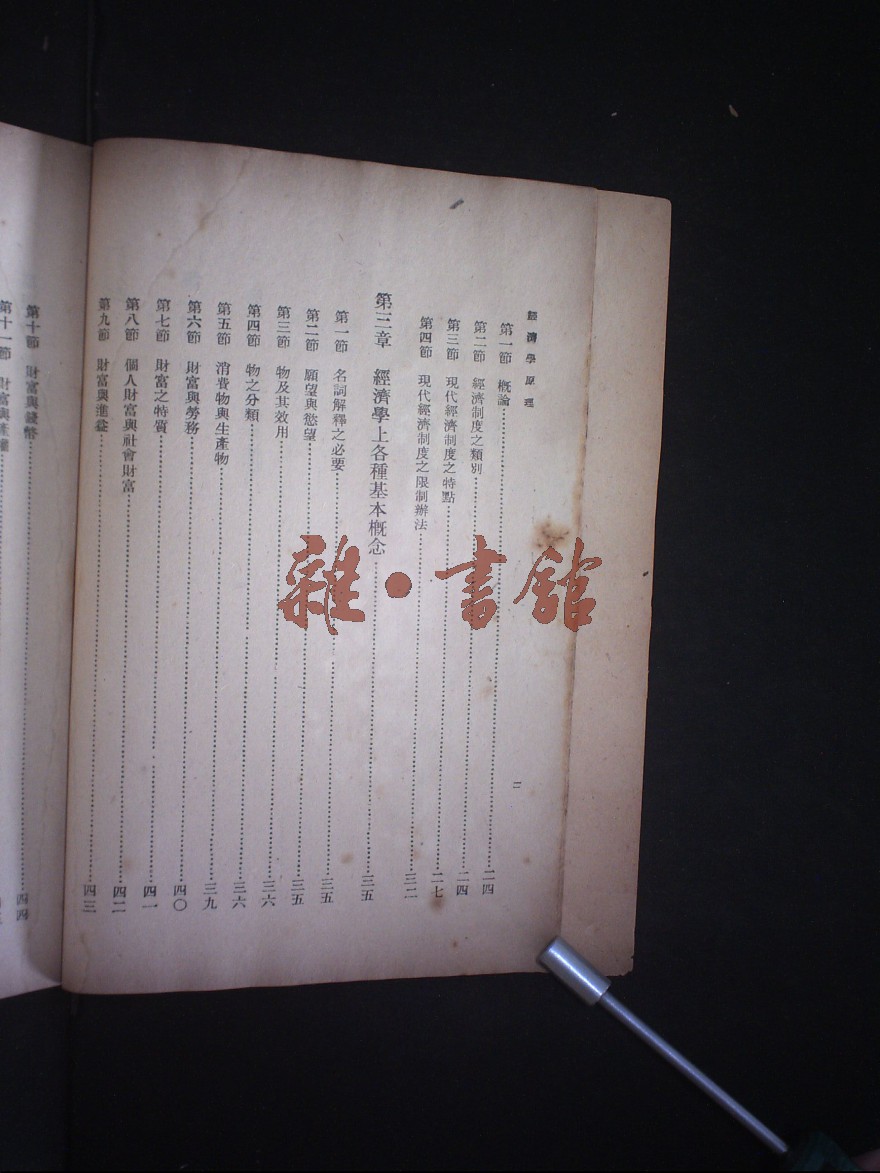 經濟學原理
二
第一節 概論……二四
第二節 經濟制度之類別……二四
第三節 現代經濟制度之特點……二七
第四節 現代經濟制度之限制辦法……三二
第三章 經濟學上各種基本概念……三五
第一節 名詞解釋之必要……三五
第二節 願望與慾望……三五
第三節 物及其效用……三六
第四節 物之分類……三六
第五節 消費物與生產物……三九
第六節 財富與勞務……四〇
第七節 財富之特質……四一
第八節 個人財富與社會財富……四二
第九節 財富與進益……四三
第十節 財富與錢幣……四四
第十一節 財富與產權……
雜·書館